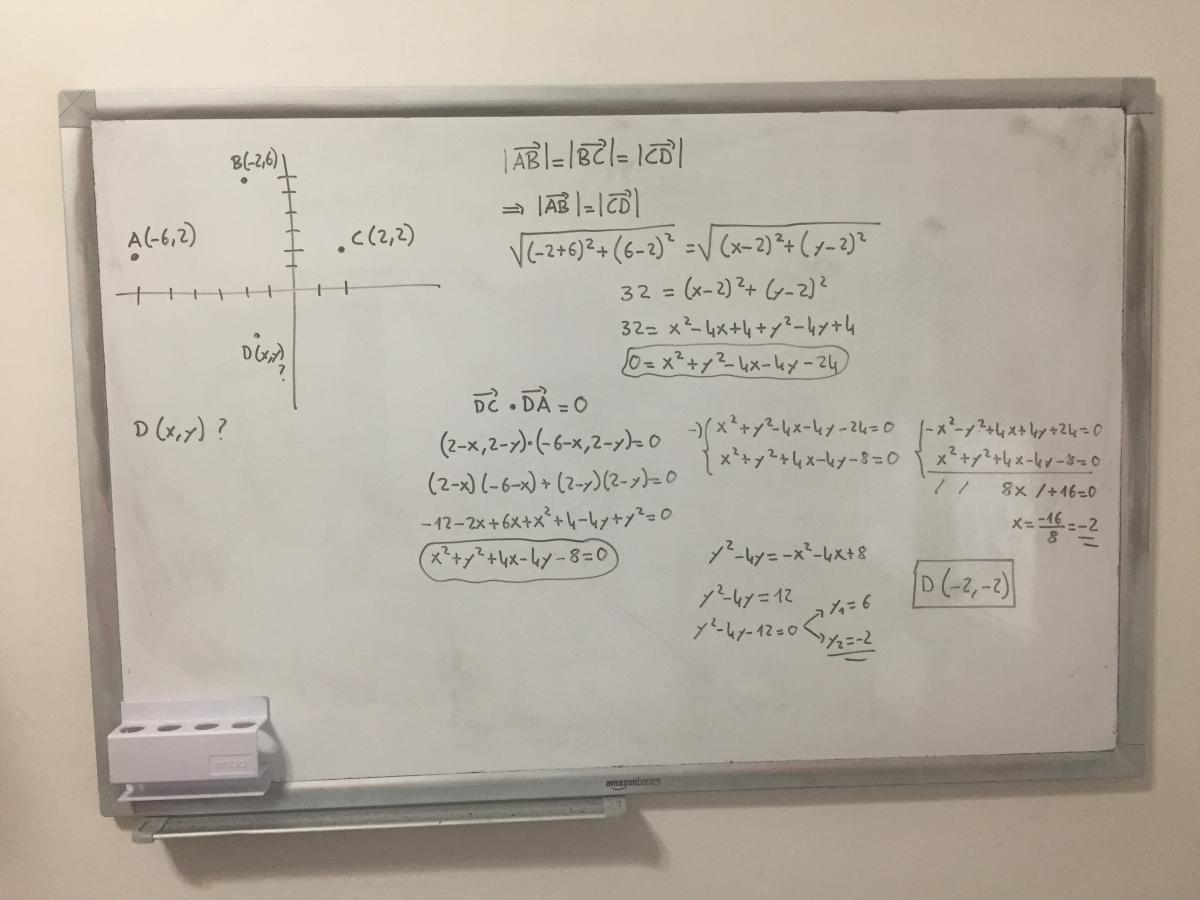 B(-2,6)
A(-6,2)
C(2,2)
D(x,y)
?
D(x,y)?
|AB⃗|=|BC⃗|=|CD⃗|
⇒ |AB⃗|=|CD⃗|
√(-2+6)²+(6-2)² = √(x-2)²+(y-2)²
32 = (x-2)²+(y-2)²
32= x²-4x+4+y²-4y+4
0= x²+y²-4x-4y-24
DC⃗ · DA⃗ = 0
(2-x,2-y)·(-6-x,2-y)=0
(2-x)(-6-x)+(2-y)(2-y)=0
-12-2x+6x+x²+4-4y+y²=0
x²+y²+4x-4y-8=0
-) { x²+y²-4x-4y-24=0
x²+y²+4x-4y-8=0
{ -x²-y²+4x+4y+24=0
x²+y²+4x-4y-8=0
/ / 8x /+16=0
x=-16/8=-2
y²-4y=-x²-4x+8
y²-4y=12
y²-4y-12=0
y₁=6
y₂=-2
D(-2,-2)
nobo
amazonbasics